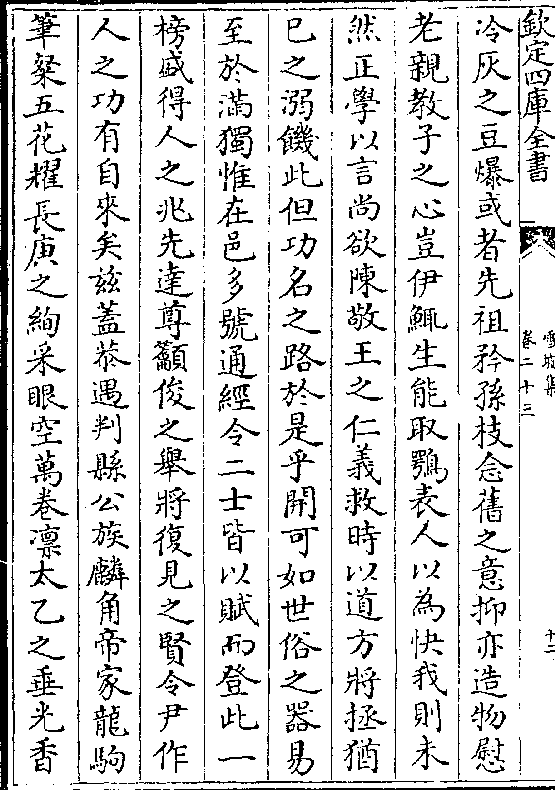 欽定四庫全書
雪坡集
卷二十三
十二
冷灰之豆爆或者先祖矜孫枝念舊之意抑亦造物慰
老親教子之心豈伊鯫生能取鶚表人以為快我則未
然正學以言尚欲陳敬王之仁義救時以道方將拯猶
已之溺饑此但功名之路於是乎開可如世俗之器易
至於滿獨惟在邑多號通經令二士皆以賦而登此一
榜盛得人之兆先達尊籲俊之舉將復見之賢令尹作
人之功有自來矣兹蓋恭遇判縣公族麟角帝家龍駒
筆粲五花耀長庚之絢采眼空萬卷凛太乙之垂光香